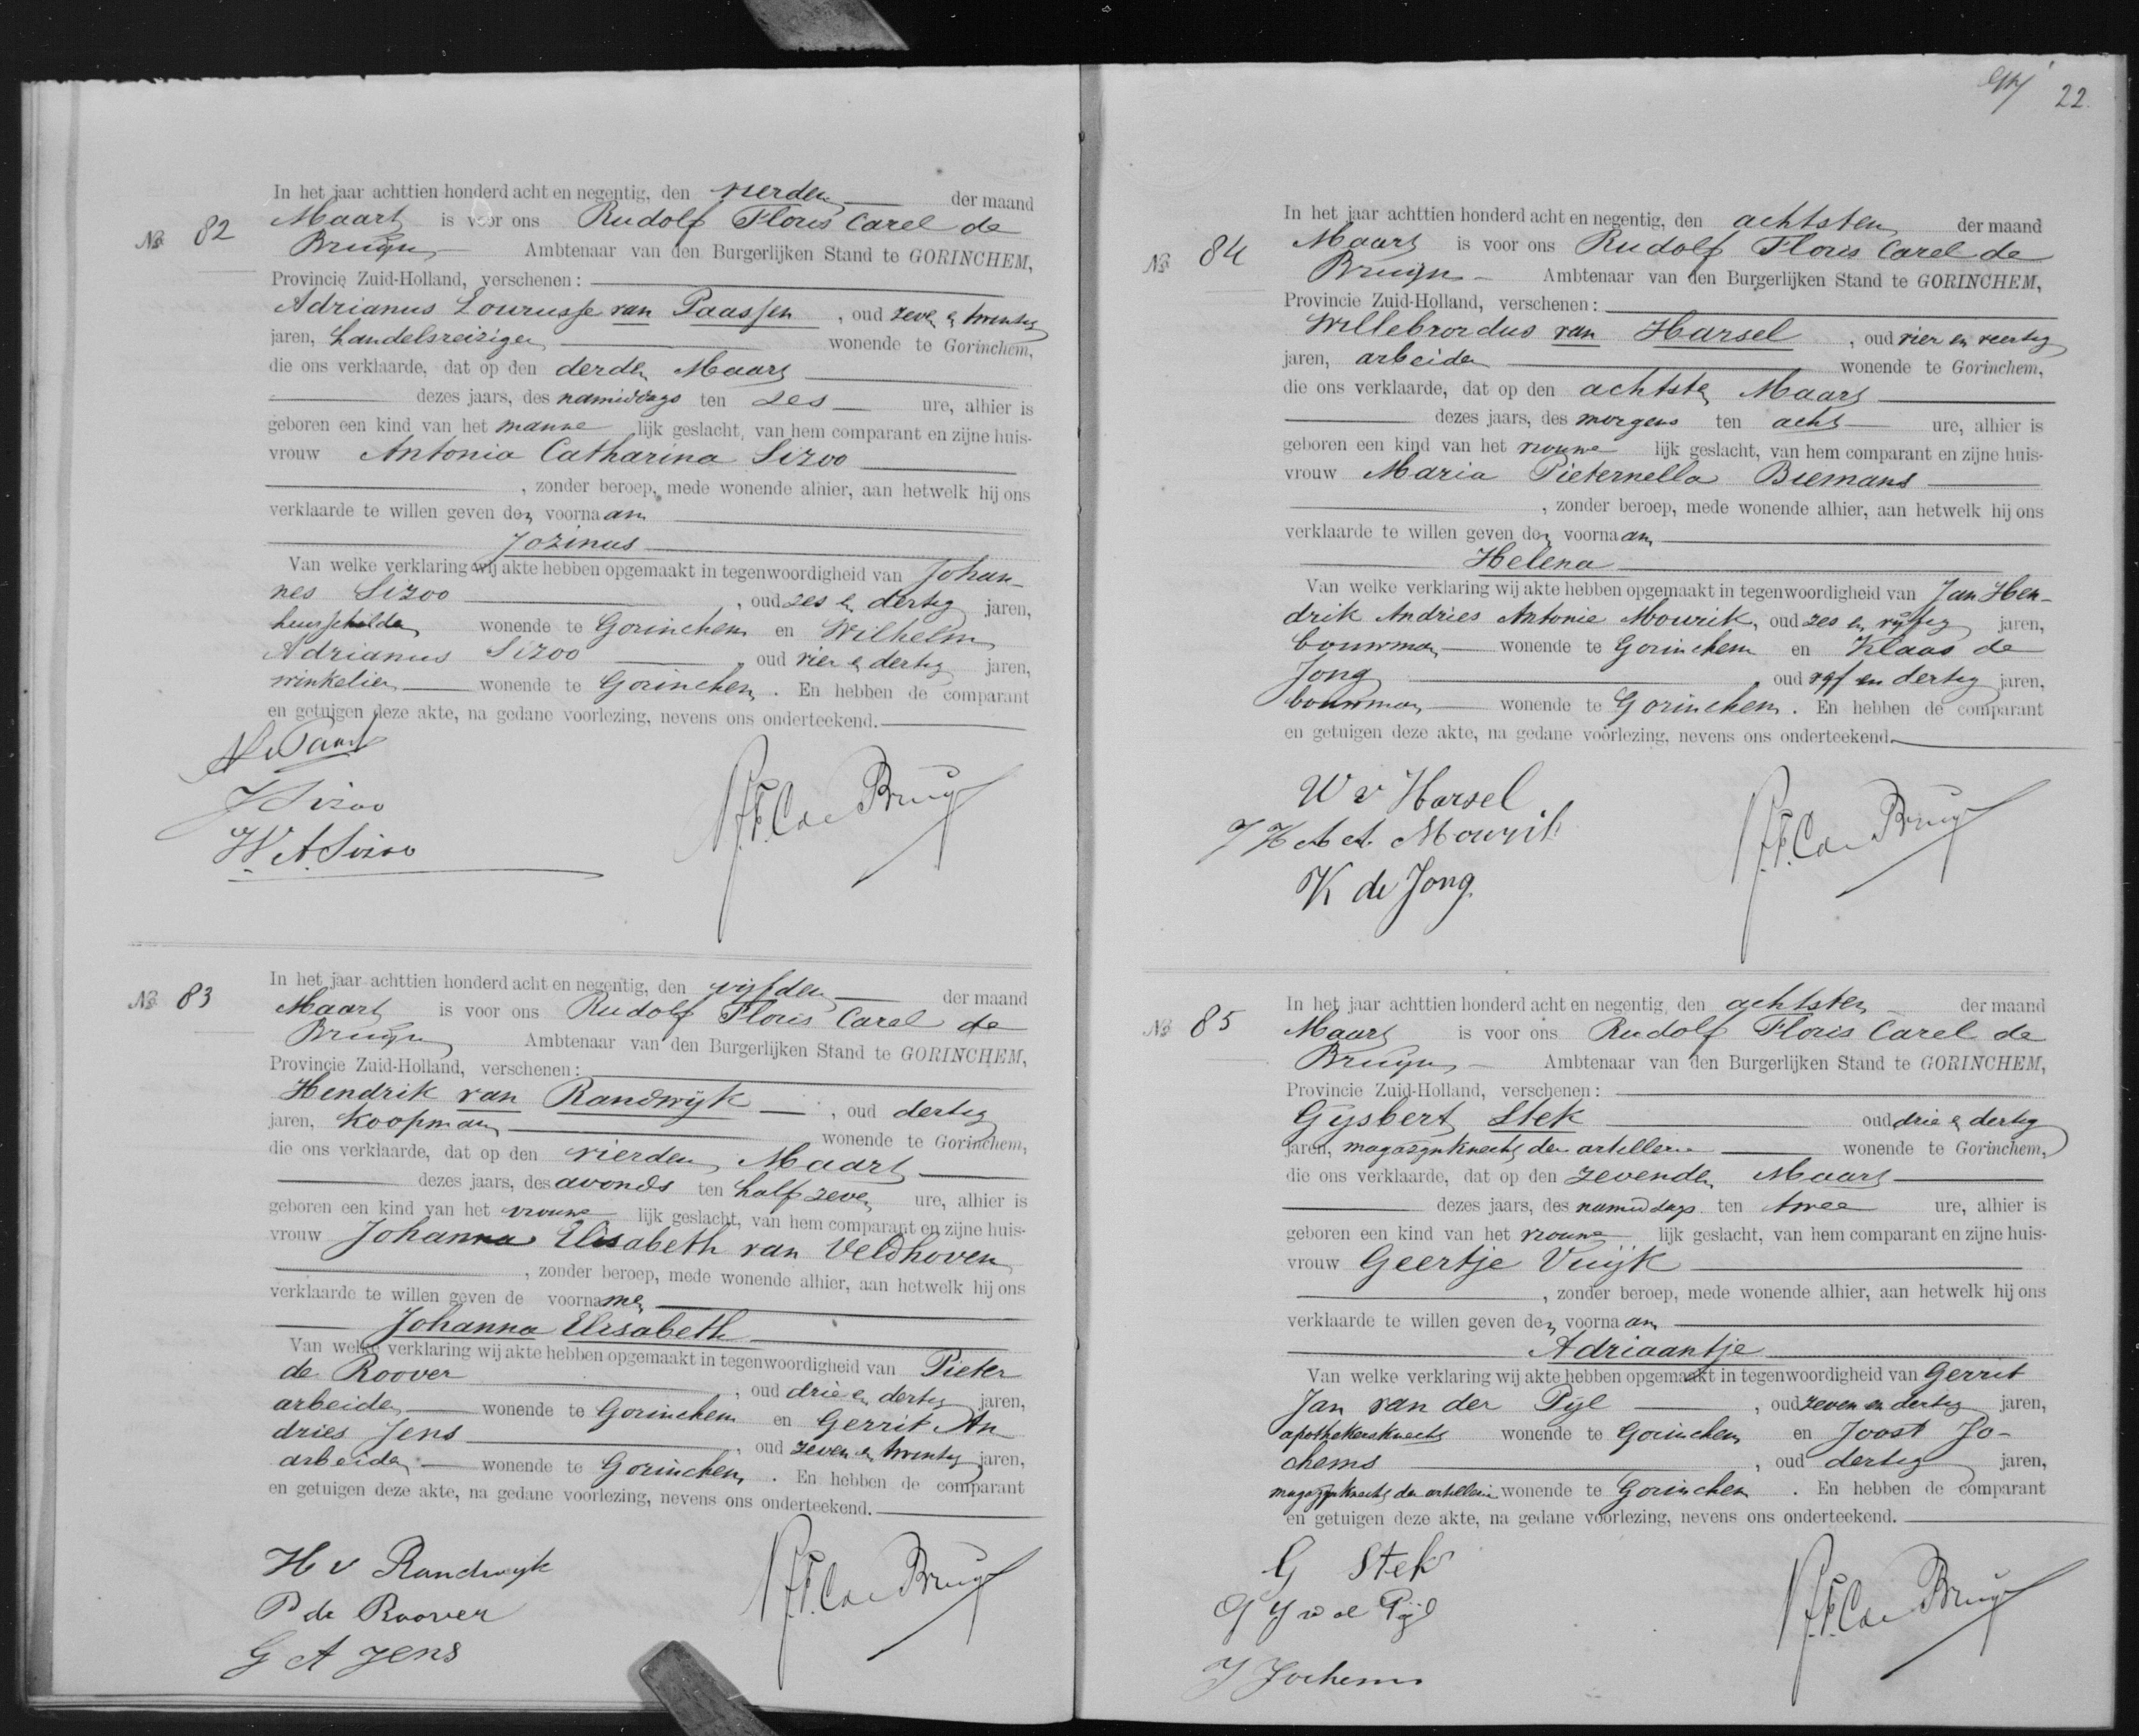 22.
In het jaar achttien honderd acht en negentig, den vierden der maand
Nº 82
Maart is voor ons Rudolf Floris Carel de
Bruijn Ambtenaar van den Burgerlijken Stand te GORINCHEM,
Provincie Zuid-Holland, verschenen:
Adrianus Lourusse van Paassen, oud zeven en twintig
jaren, handelsreiziger wonende te Gorinchem,
die ons verklaarde, dat op den derden Maart
dezes jaars, des namiddags ten zes ure, alhier is
geboren een kind van het manne lijk geslacht, van hem comparant en zijne huis-
vrouw Antonia Catharina Sizoo
, zonder beroep, mede wonende alhier, aan hetwelk hij ons
verklaarde te willen geven den voornaam
Jozinus
Van welke verklaring wij akte hebben opgemaakt in tegenwoordigheid van Johan-
nes Sizoo, oud zes en dertig jaren,
huisschilder wonende te Gorinchem en Wilhelm
Adrianus Sizoo oud vier en dertig jaren,
winkelier wonende te Gorinchem. En hebben de comparant
en getuigen deze akte, na gedane voorlezing, nevens ons onderteekend.
J Sizoo
W. A. Sizoo
R.F.C. de Bruijn
In het jaar achttien honderd acht en negentig, den vijfden der maand
Nº 83
Maart is voor ons Rudolf Floris Carel de
Bruijn Ambtenaar van den Burgerlijken Stand te GORINCHEM,
Provincie Zuid-Holland, verschenen:
Hendrik van Randwijk, oud dertig
jaren, koopman wonende te Gorinchem,
die ons verklaarde, dat op den vierden Maart
dezes jaars, des avonds ten half zeven ure, alhier is
geboren een kind van het vrouwe lijk geslacht, van hem comparant en zijne huis-
vrouw Johanna Elisabeth van Veldhoven
, zonder beroep, mede wonende alhier, aan hetwelk hij ons
verklaarde te willen geven de voornamen
Johanna Elisabeth
Van welke verklaring wij akte hebben opgemaakt in tegenwoordigheid van Pieter
de Roover, oud drie en dertig jaren,
arbeider wonende te Gorinchem en Gerrit An
dries Jens, oud zeven en twintig jaren,
arbeider wonende te Gorinchem. En hebben de comparant
en getuigen deze akte, na gedane voorlezing, nevens ons onderteekend.
H v Randwijk
P de Roover
G A Jens
R.F.C. de Bruijn
In het jaar achttien honderd acht en negentig, den achtsten der maand
Nº 84
Maart is voor ons Rudolf Floris Carel de
Bruijn Ambtenaar van den Burgerlijken Stand te GORINCHEM,
Provincie Zuid-Holland, verschenen:
Willebrordus van Harsel, oud vier en veertig
jaren, arbeider wonende te Gorinchem,
die ons verklaarde, dat op den achtsten Maart
dezes jaars, des morgens ten acht ure, alhier is
geboren een kind van het vrouwe lijk geslacht, van hem comparant en zijne huis-
vrouw Maria Pieternella Biemans
, zonder beroep, mede wonende alhier, aan hetwelk hij ons
verklaarde te willen geven den voornaam
Helena
Van welke verklaring wij akte hebben opgemaakt in tegenwoordigheid van Jan Hen-
drik Andries Antonie Mourik, oud zes en vijftig jaren,
bouwman wonende te Gorinchem en Klaas de
Jong, oud vijf en dertig jaren,
bouwman wonende te Gorinchem. En hebben de comparant
en getuigen deze akte, na gedane voorlezing, nevens ons onderteekend.
W v Harsel
J H A A Mourik
K de Jong.
R.F.C. de Bruijn
In het jaar achttien honderd acht en negentig, den achtsten der maand
Nº 85
Maart is voor ons Rudolf Floris Carel de
Bruijn Ambtenaar van den Burgerlijken Stand te GORINCHEM,
Provincie Zuid-Holland, verschenen:
Gijsbert Stek oud drie en dertig
jaren, magazijnknecht der artillerie wonende te Gorinchem,
die ons verklaarde, dat op den zevenden Maart
dezes jaars, des namiddags ten twee ure, alhier is
geboren een kind van het vrouwe lijk geslacht, van hem comparant en zijne huis-
vrouw Geertje Vuijk
, zonder beroep, mede wonende alhier, aan hetwelk hij ons
verklaarde te willen geven den voornaam
Adriaantje
Van welke verklaring wij akte hebben opgemaakt in tegenwoordigheid van Gerrit
Jan van der Pijl, oud zeven en dertig jaren,
apothekersknecht wonende te Gorinchem en Joost Jo-
chems, oud dertig jaren,
magazijnknecht der artillerie wonende te Gorinchem. En hebben de comparant
en getuigen deze akte, na gedane voorlezing, nevens ons onderteekend.
G Stek
G J v d Pijl
J Jochems
R.F.C. de Bruijn